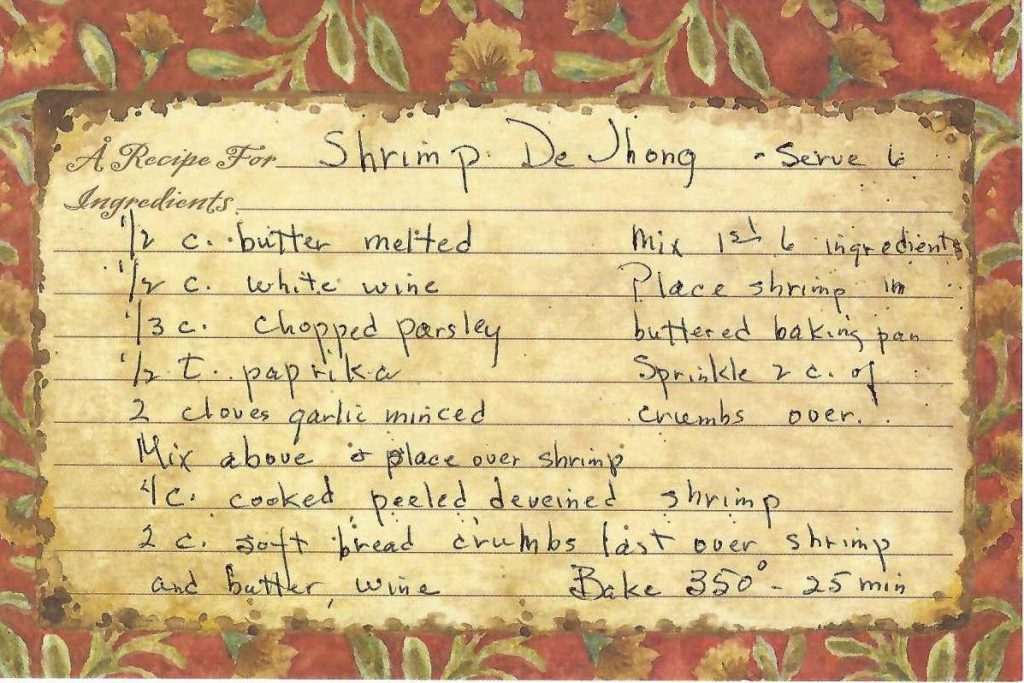 A Recipe For Shrimp De Jhong - Serve 6
Ingredients
1/2 c. butter melted
1/2 c. white wine
1/3 c. chopped parsley
1/2 t. paprika
2 cloves garlic minced
Mix 1st 6 ingredients
Place shrimp in
buttered baking pan
Sprinkle 2 c. of
crumbs over.
Mix above & place over shrimp
4 c. cooked peeled deveined shrimp
2 c. soft bread crumbs last over shrimp
and butter, wine Bake 350° - 25 min